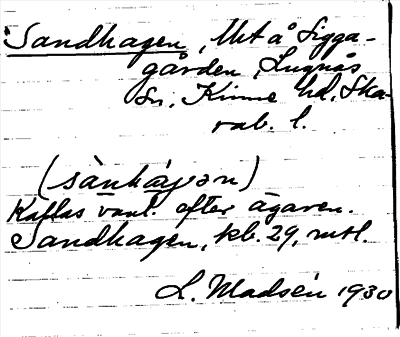 Sandhagen, Mt å Sigga-
gården, Lugnås
Sn, Kinne hd, Ska-
rab. l.
(sànháγən)
Kallas vanl. efter ägaren.
Sandhagen, kb. 29, mtl.
L. Madsén 1930